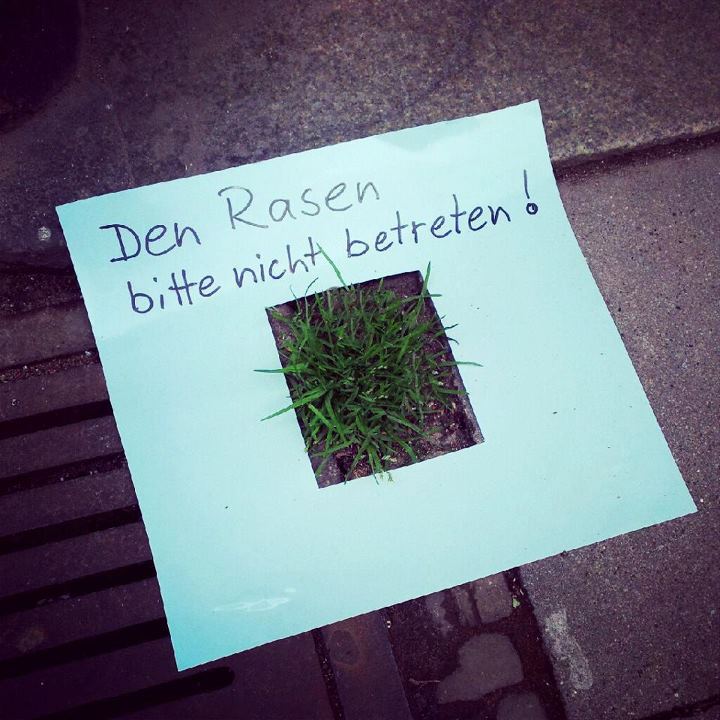 Den Rasen
bitte nicht betreten!